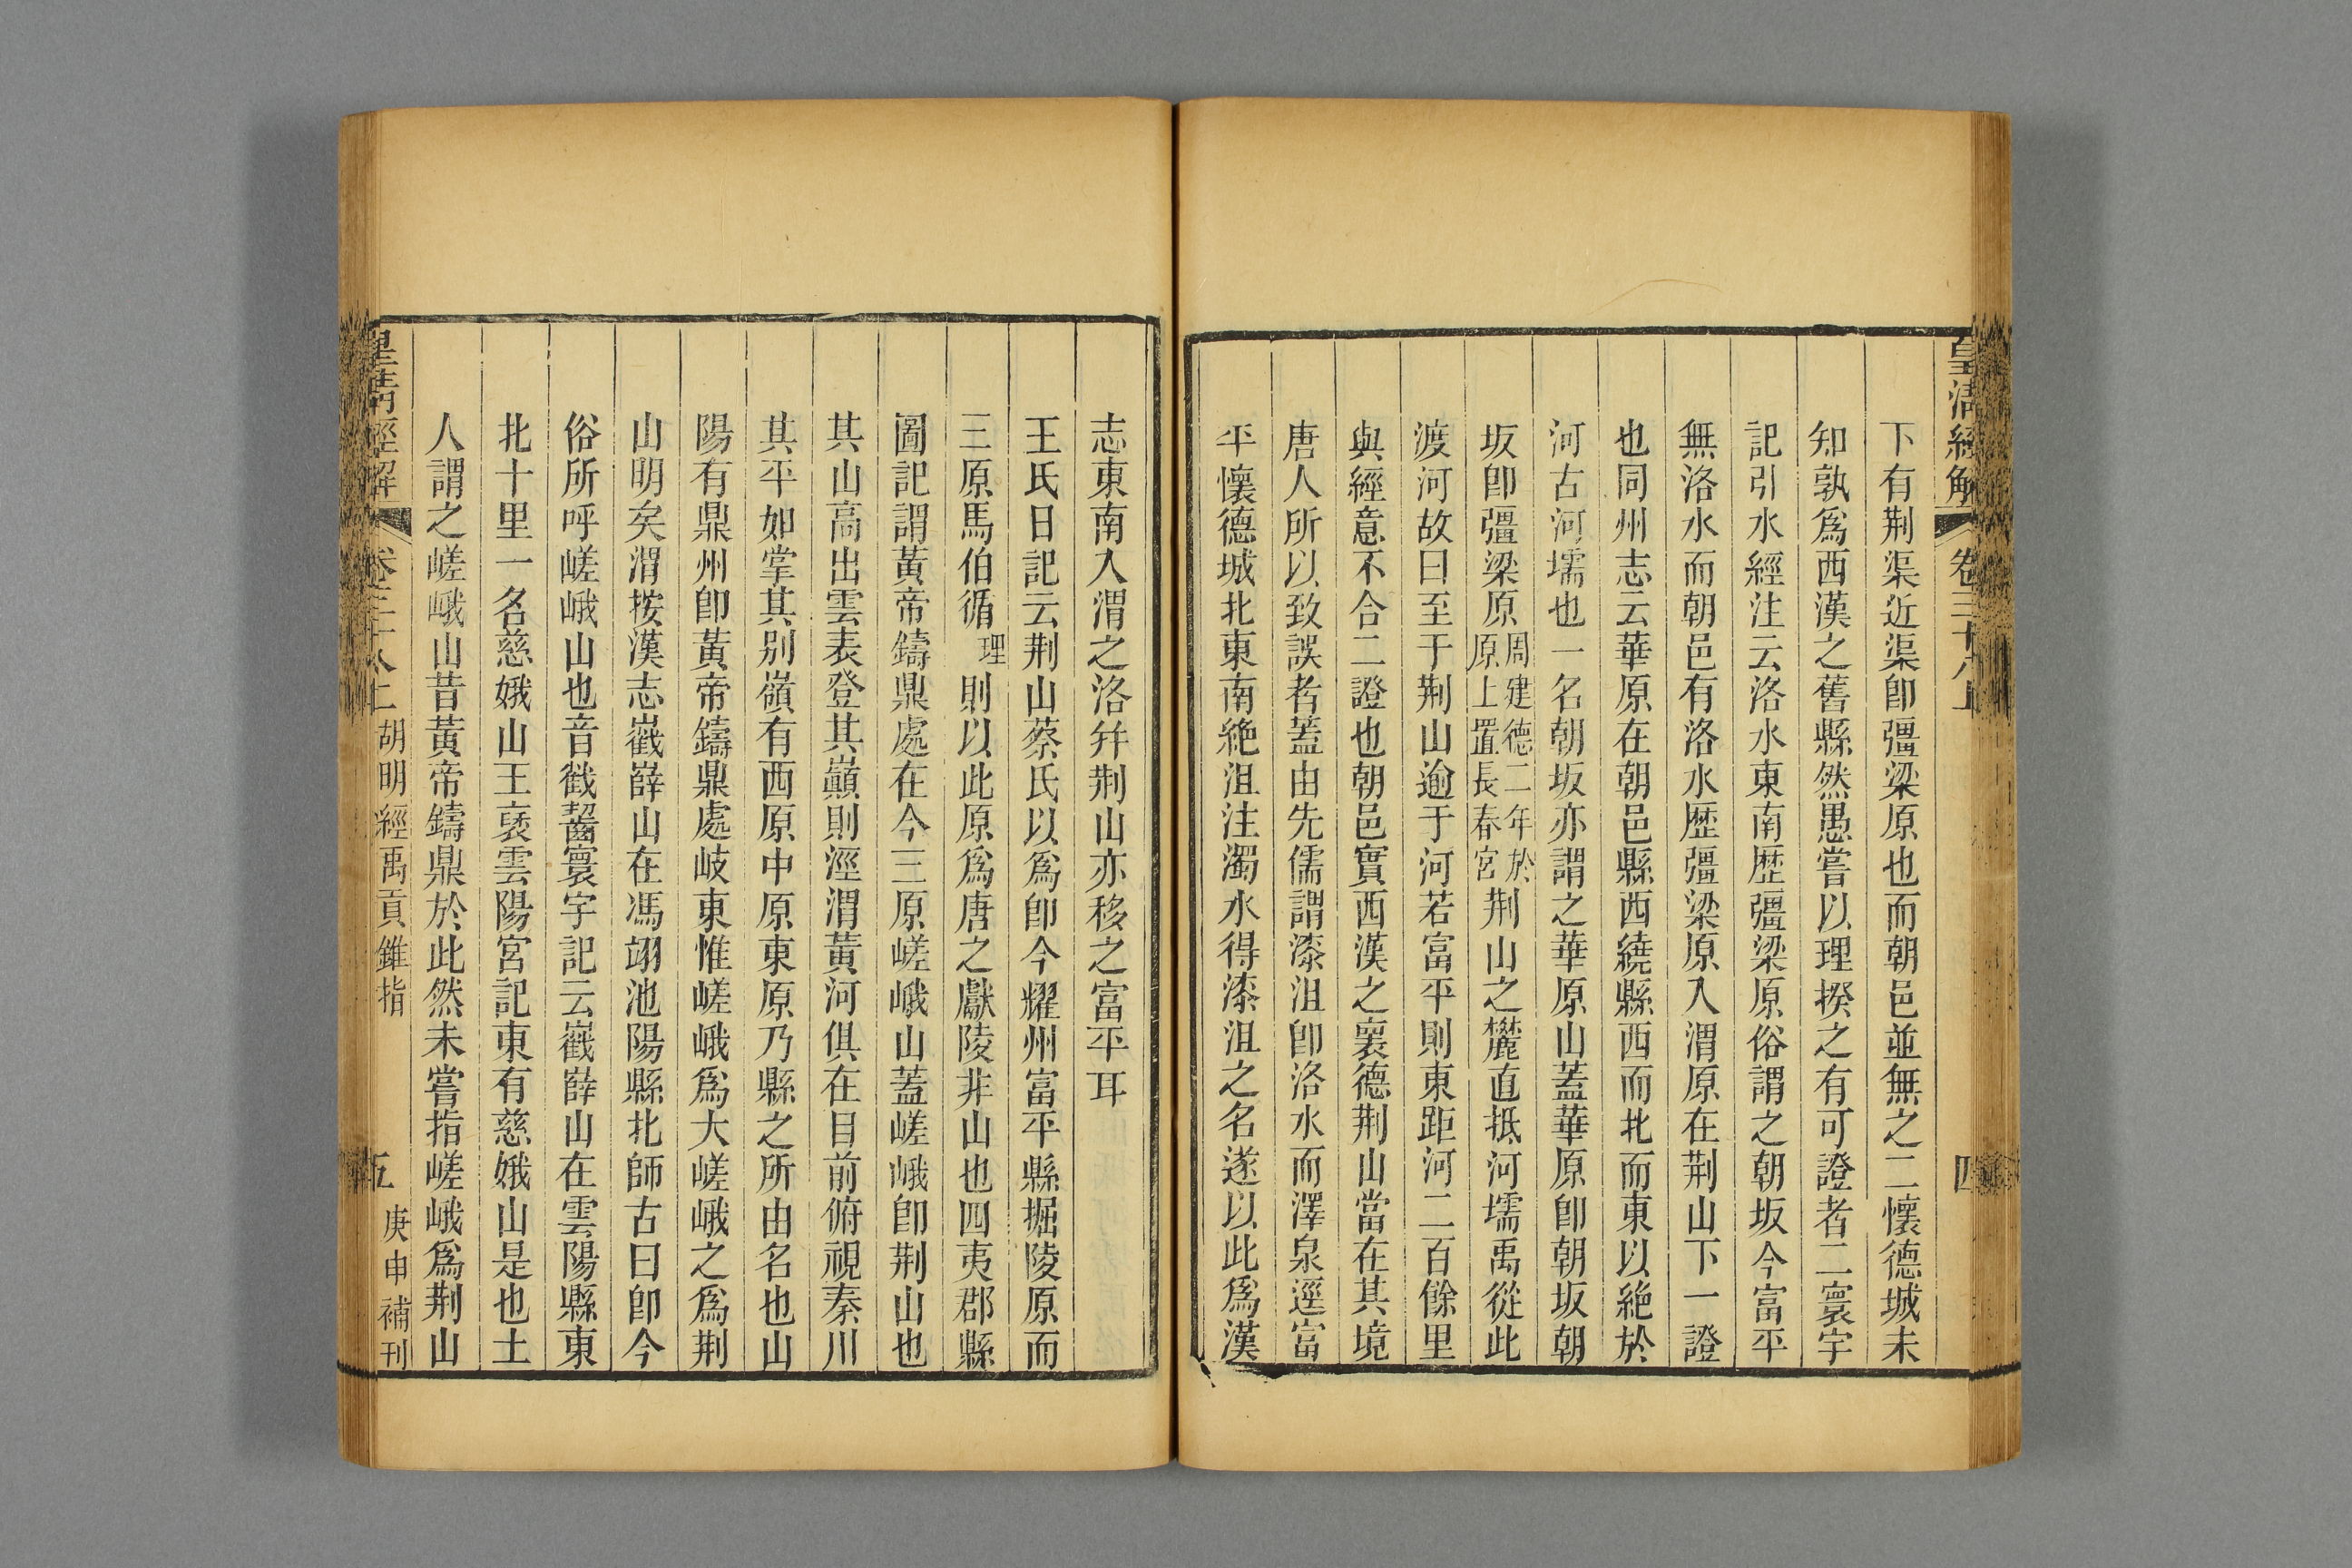 皇清經解 卷三十八上 四
下有荆渠近渠卽彊梁原也而朝邑並無之二懷德城未
知孰爲西漢之舊縣然愚嘗以理揆之有可證者二寰宇
記引水經注云洛水東南歷彊梁原俗謂之朝坂今富平
無洛水而朝邑有洛水歷彊梁原入渭原在荆山下一證
也同州志云華原在朝邑縣西繞縣西而北而東以絶於
河古河壖也一名朝坂亦謂之華原山蓋華原卽朝坂朝
坂卽彊梁原周建德二年於原上置長春宮荆山之麓直抵河壖禹從此
渡河故曰至于荆山逾于河若富平則東距河二百餘里
與經意不合二證也朝邑實西漢之褱德荆山當在其境
唐人所以致誤者蓋由先儒謂漆沮卽洛水而澤泉逕富
平懷德城北東南絶沮注濁水得漆沮之名遂以此爲漢
志東南入渭之洛幷荆山亦移之富平耳
王氏日記云荆山蔡氏以爲卽今耀州富平縣掘陵原而
三原馬伯循理則以此原爲唐之獻陵非山也四夷郡縣
圖記謂黃帝鑄鼎處在今三原嵯峨山蓋嵯峨卽荆山也
其山高出雲表登其巔則涇渭黃河俱在目前俯視秦川
其平如掌其别嶺有西原中原東原乃縣之所由名也山
陽有鼎州卽黃帝鑄鼎處岐東惟嵯峨爲大嵯峨之爲荆
山明矣渭按漢志嶻嶭山在馮翊池陽縣北師古曰卽今
俗所呼嵯峨山也音戳齧寰宇記云嶻嶭山在雲陽縣東
北十里一名慈娥山王褒雲陽宮記東有慈娥山是也土
人謂之嵯峨山昔黃帝鑄鼎於此然未嘗指嵯峨爲荆山
皇清經解 卷三十八上 胡明經禹貢錐指 五 庚申補刊